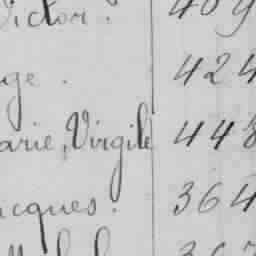 Victor. 409
ge. 424
arie, Virgile 448
cques. 364